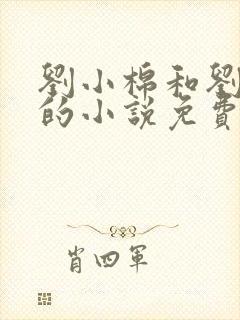 劉小棉和劉
的小說免費
肖四軍